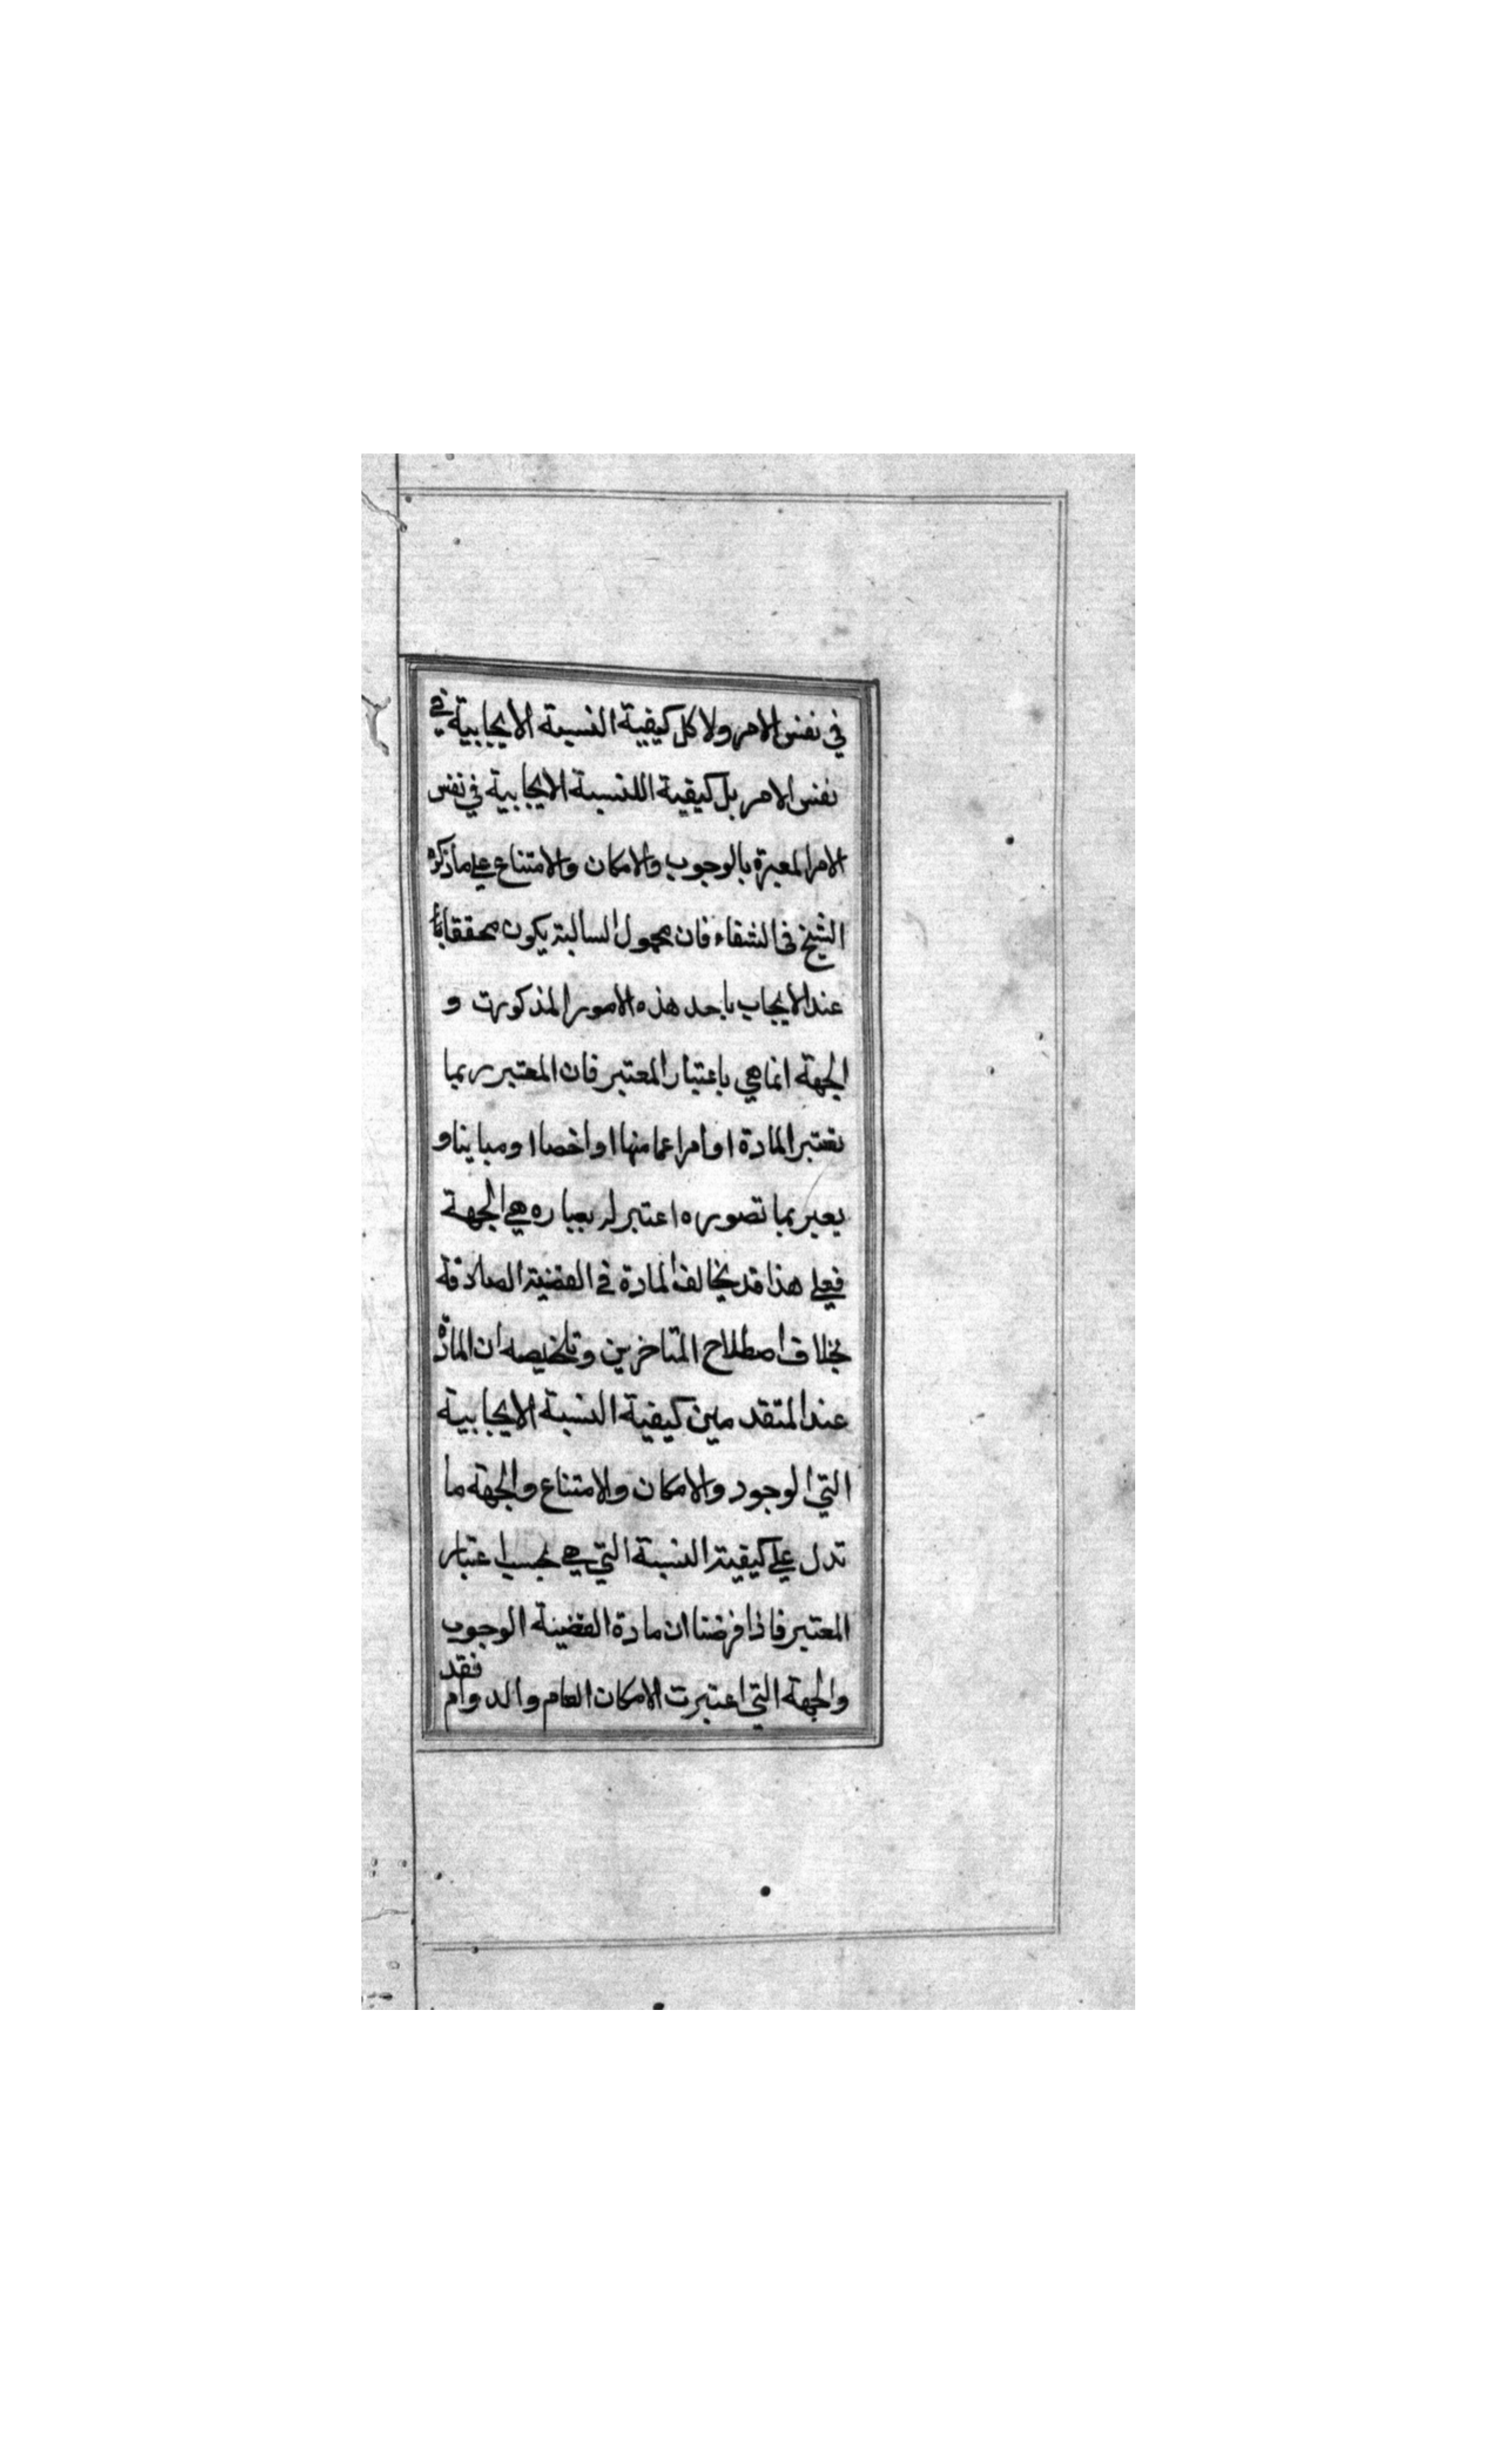 في نفس الامر ولا كل كيفية النسبة الايجابية في
نفس الامر بل كيفية اللنسبة الايجابية في نفس
الامر المعبرة بالوجوب والامكان والامتناع علي ما ذكره
الشيخ في الشفاء فان محمول السالبة يكون محققا
عند الايجاب باحد هذه الامور المذكورت و
الجهة انما هي باعتبار المعتبر فان المعتبر ربما
تعتبر المادة او امرا عما منها او اخصا او مباينا و
يعبر بما تصوره اعتبر له بعباره هي الجهة
فعلي هذا قد يخالف المادة في القضية الصادقة
بخلاف اصطلاح المتاخرين وتلخيصه ان المادة
عند المتقد مين كيفية النسبة الايجابية
التي الوجود والامكان ولامتناع والجهة ما
تدل علي كيفية النسبة التي هي بحسب اعتبار
المعتبر فاذا فرضنا ان مادة القضية الوجوب
والجهة التي اعتبرت الامكان العام والدوام
فقد